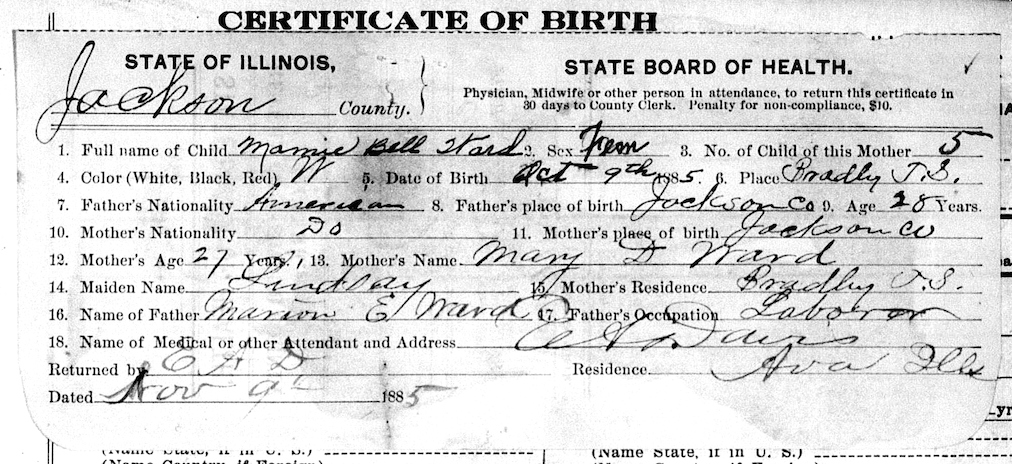 CERTIFICATE OF BIRTH
STATE OF ILLINOIS, STATE BOARD OF HEALTH.
Jackson County. Physician, Midwife or other person in attendance, to return this certificate in
30 days to County Clerk. Penalty for non-compliance, $10.
1. Full name of Child Mamie Bell Ward 2. Sex Fem 3. No. of Child of this Mother 5
4. Color (White, Black, Red) W 5. Date of Birth Oct 9th 1885. 6. Place Bradly T.S.
7. Father's Nationality American 8. Father's place of birth Jackson Co 9. Age 28 Years.
10. Mother's Nationality Do 11. Mother's place of birth Jackson Co
12. Mother's Age 27 Years, 13. Mother's Name Mary D Ward
14. Maiden Name Lindsay 15. Mother's Residence Bradly T.S.
16. Name of Father Marion E Ward 17. Father's Occupation Laborer
18. Name of Medical or other Attendant and Address Davis
Returned by E A D Residence Ava Ills
Dated Nov 9th 1885
(Name State, if in U. S.) (Name State, if in U. S.)
(Name Country, if Foreign)